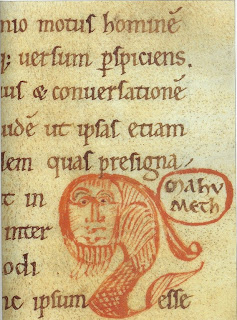 nio motus hominē
q; uersum pspiciens.
uus & conuersationē
udē ut ipsas etiam
lem quas presigna
t in
inter
odi
nc ipsum esse
Mahu
meth